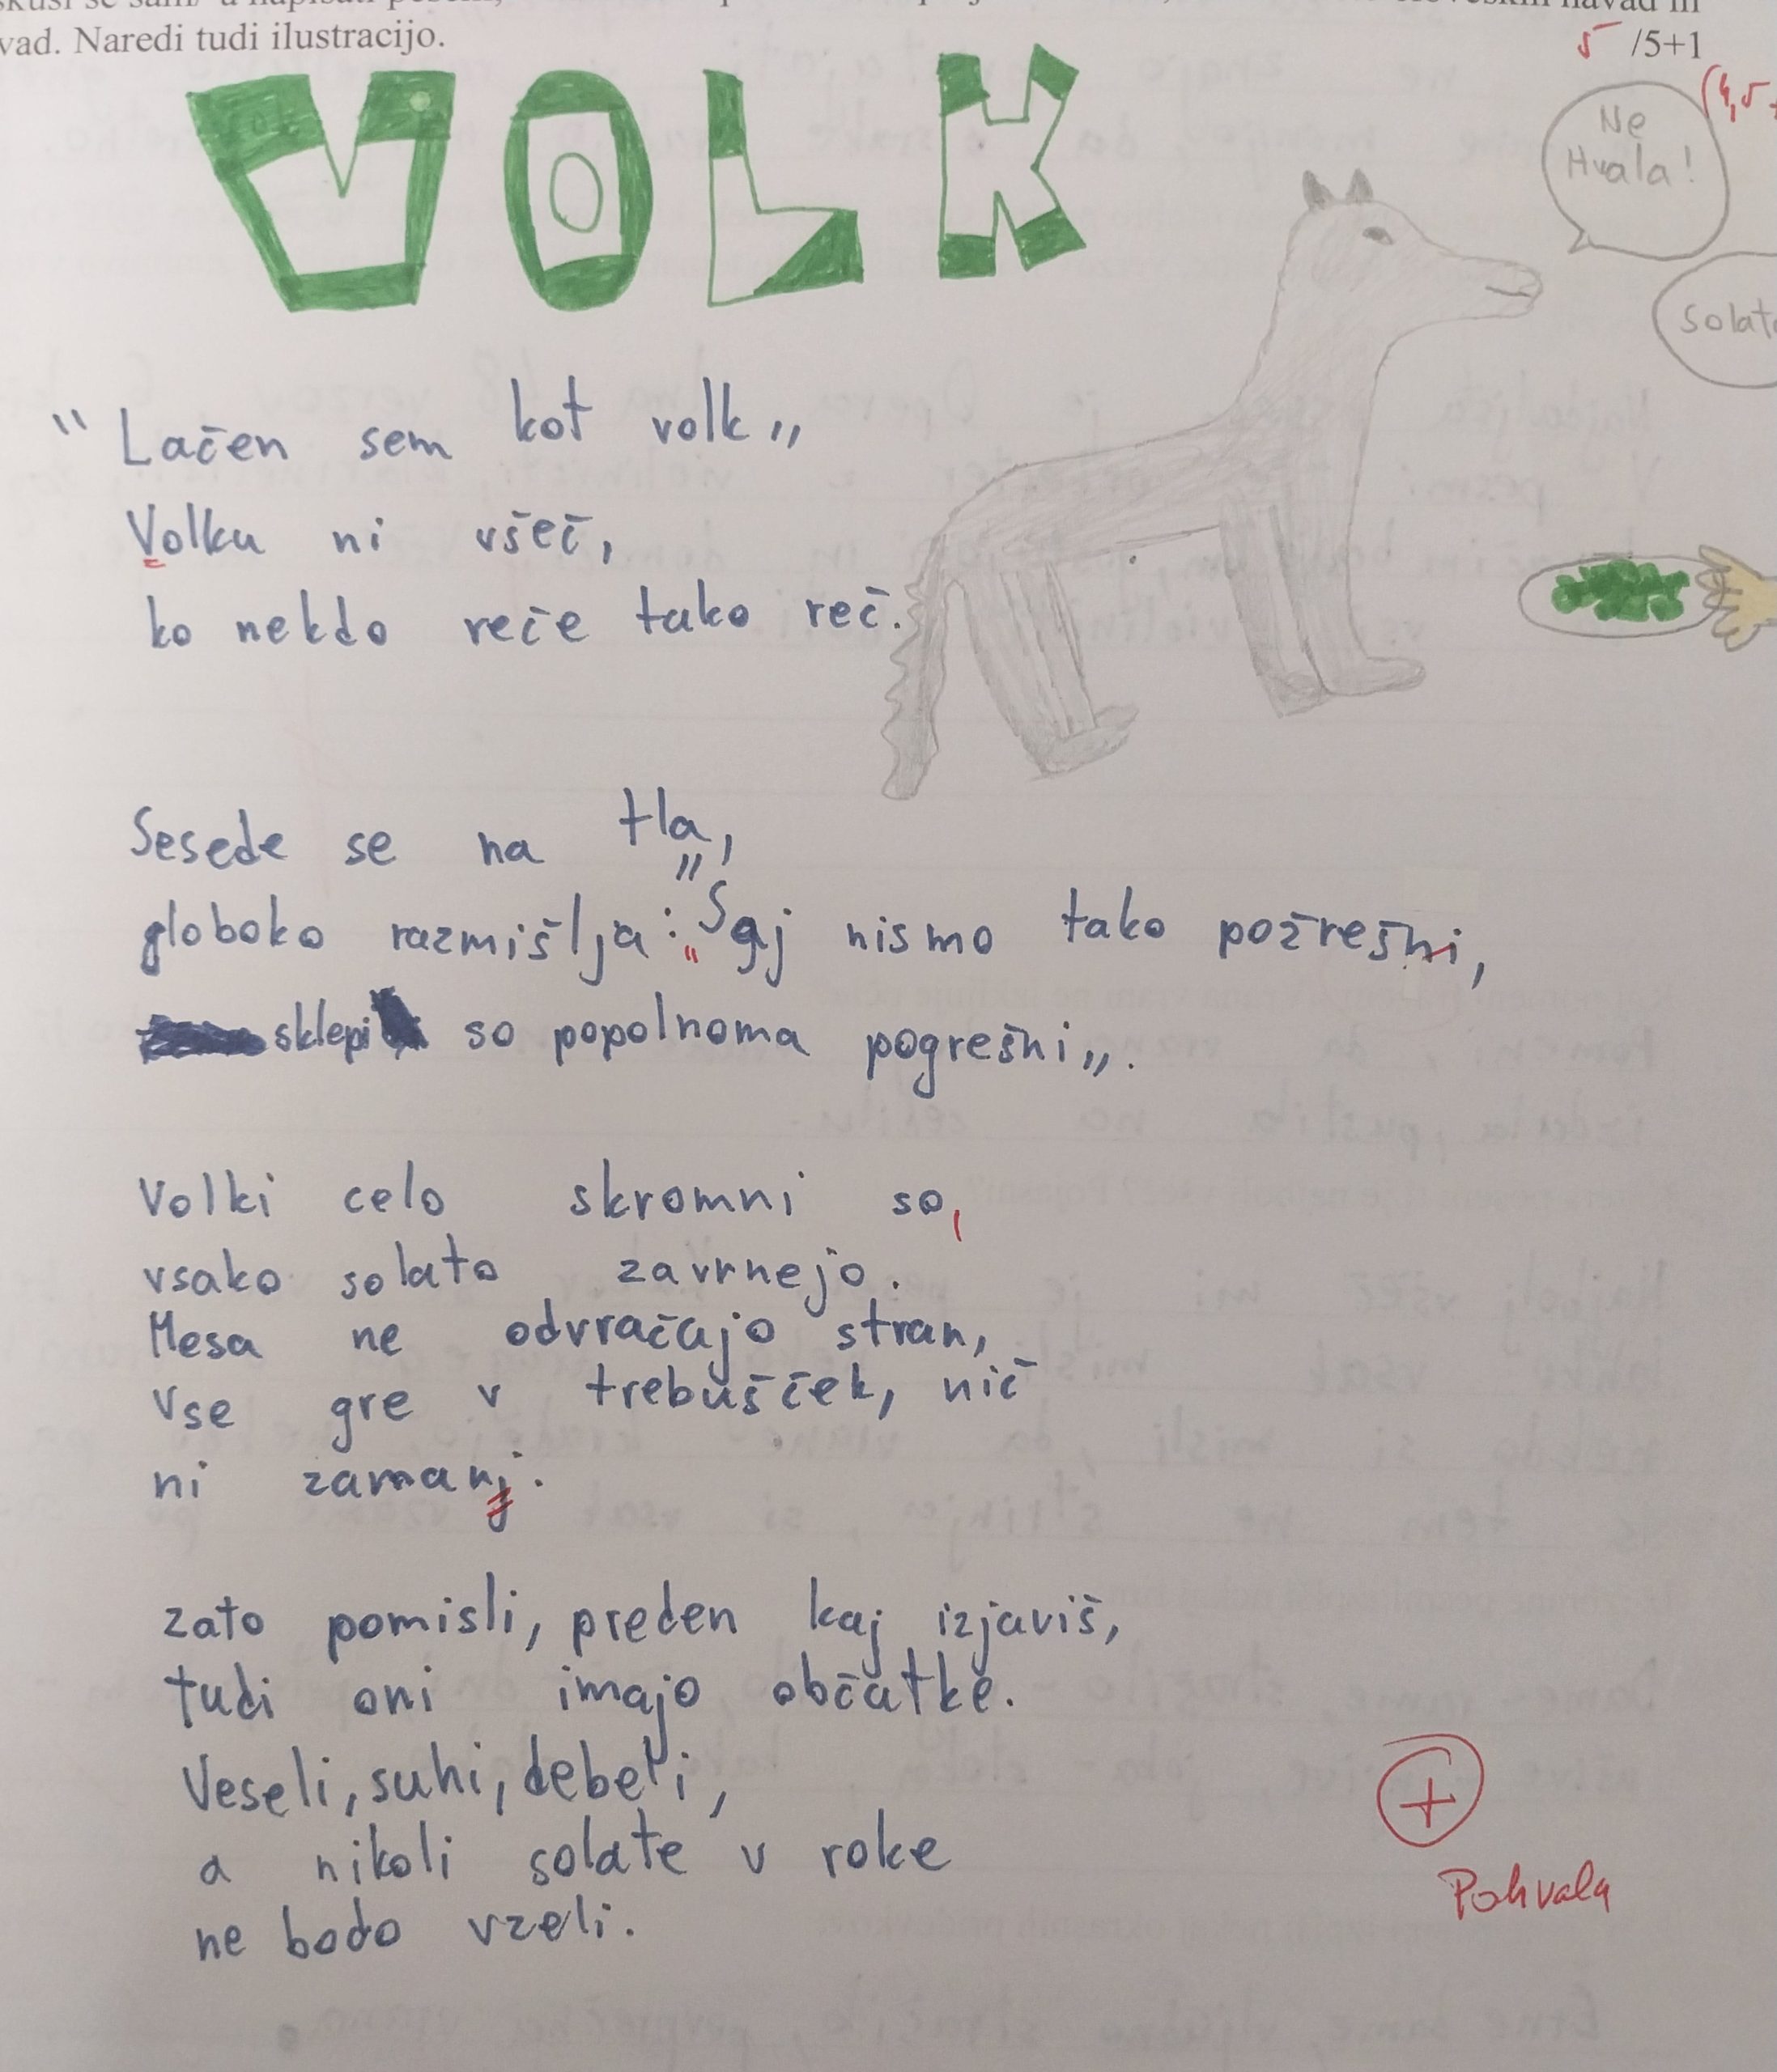 vad. Naredi tudi ilustracijo.
5 /5+1
(4,5
VOLK
Ne
Hvala!
"Lačen sem kot volk„
Volku ni všeč,
ko nekdo reče tako reč.
Sesede se na tla,
globoko razmišlja: "Saj nismo tako požrešni,
sklepi so popolnoma pogrešni„.
Volki celo skromni so,
vsako solato zavrnejo.
Mesa ne odvračajo stran,
Vse gre v trebušček, nič
ni zamanj.
zato pomisli, preden kaj izjaviš,
tudi oni imajo občutke.
Veseli, suhi, debeli,
a nikoli solate v roke
ne bodo vzeli.
+
Pohvala